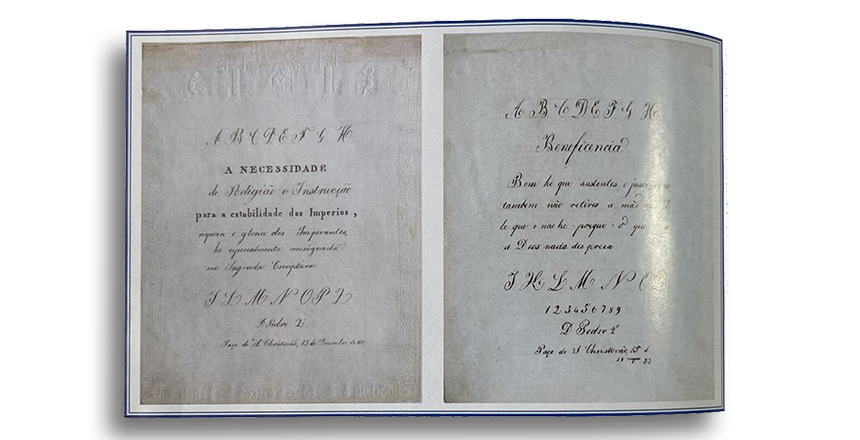 A B C D E F G H
A NECESSIDADE
de Religião e Instrucção
para a estabilidade dos Imperios,
riqueza e gloria dos Imperantes,
he especialmente consignada
na Sagrada Escriptura
I L M N O P Q
D. Pedro 2º.
Paço de S. Christovão, 13 de Dezembro de
A B C D E F G H
Beneficencia
Bem he que sustentes o
tambem não retires a mão
le que o nao he porque o que
a Deos nada des preza
I H L M N O
1 2 3 4 5 6 7 8 9
D Pedro 2º
Paço de S Christovão, 15 d
18 33